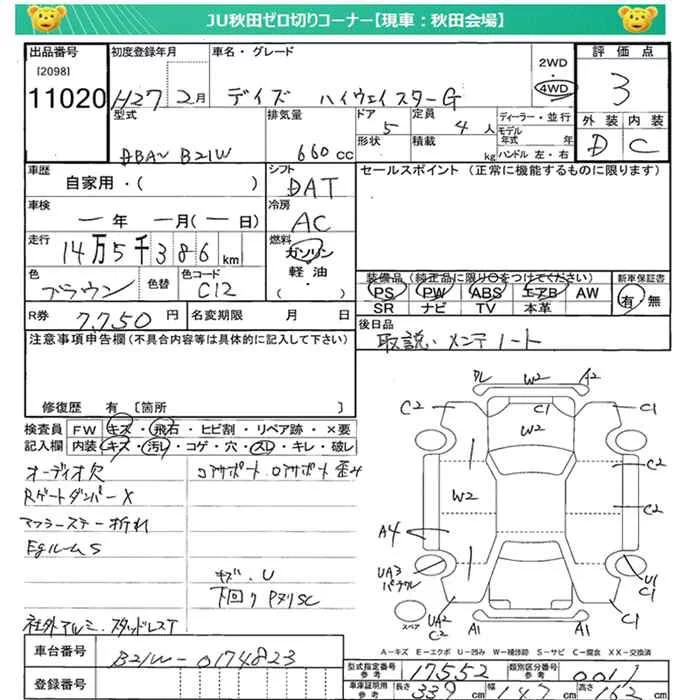 JU秋田ゼロ切りコーナー【現車：秋田会場】
出品番号 初度登録年月 車名・グレード 2WD 4WD 評価点
[2098]
11020 H27 2月 デイズ ハイウェイスターG 3
型式 排気量 ドア 定員 ディーラー・並行 外装 内装
DBA-B21W 660cc 5 4人 モデル年式 年 D C
形状 積載 kg ハンドル 左・右
車歴 シフト セールスポイント (正常に機能するものに限ります)
自家用・( ) DAT
車検 冷房
ー年 ー月(ー日) AC
走行 燃料
14万5千386km ガソリン
軽油
・( )
色 色替 色コード 装備品 (純正品に限り○をつけてください) 新車保証書
ブラウン C12 PS PW ABS エアB AW 有・無
SR ナビ TV 本革
R券 7,750円 名変期限 月 日 後日品
注意事項申告欄(不具合内容等は具体的に記入して下さい) 取説、メンテノート
修復歴 有 〔箇所 〕
検査員 FW キズ・飛石・ヒビ割・リペア跡・×要
記入欄 内装 キズ・汚レ・コゲ・穴・スレ・キレ・破レ
オーディオ欠 コアサポート、ロアサポート歪み
RゲートダンパーX
マフラーステー折れ
EgルームS
キズ・U
下回り PメリSC
社外アルミ、スタッドレスT
W2 A2
C2 C1 C1
W2
C2
W2 C2
A4
UA3 U1
C1
UA2
C2 C1
スペア A1 A1
A－キズ E－エクボ U－凹み W－補修跡 S－サビ C－腐食 XX－交換済
車台番号 B21W-0174823
登録番号
型式指定番号 参考 17552 類別区分番号 参考 0011
車庫証明用 参考 長さ 339 幅 147 高さ 162 cm